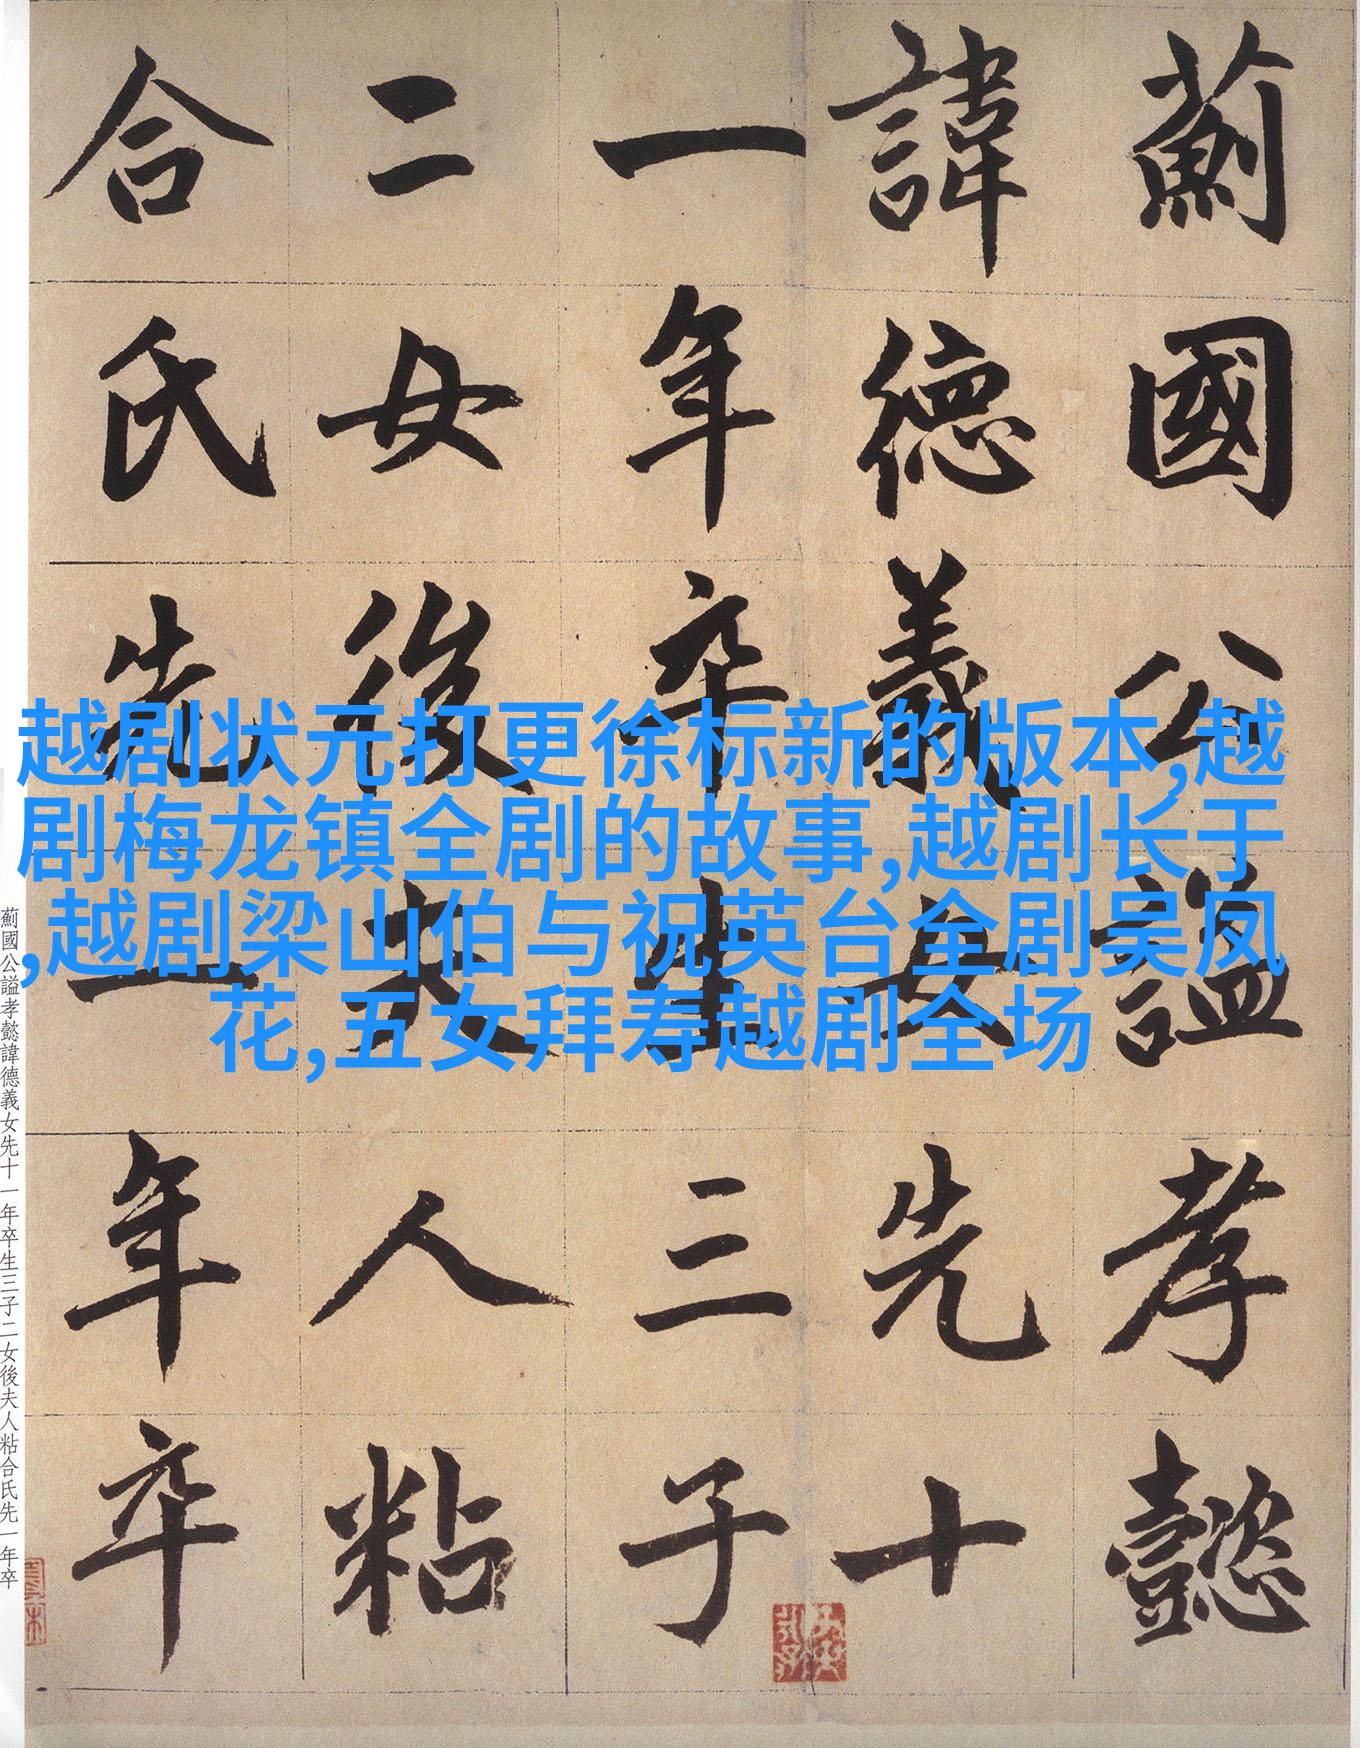 薊國公謚孝懿
諱德義女先十
一年卒生三子
二女後夫人粘
合氏先一年卒
越剧状元打更徐标新的版本,越
剧梅龙镇全剧的故事,越剧长于
,越剧梁山伯与祝英台全剧吴凤
花,五女拜寿越剧全场
薊國公謚孝懿諱德義女先十一年卒生三子二女後夫人粘合氏先一年卒